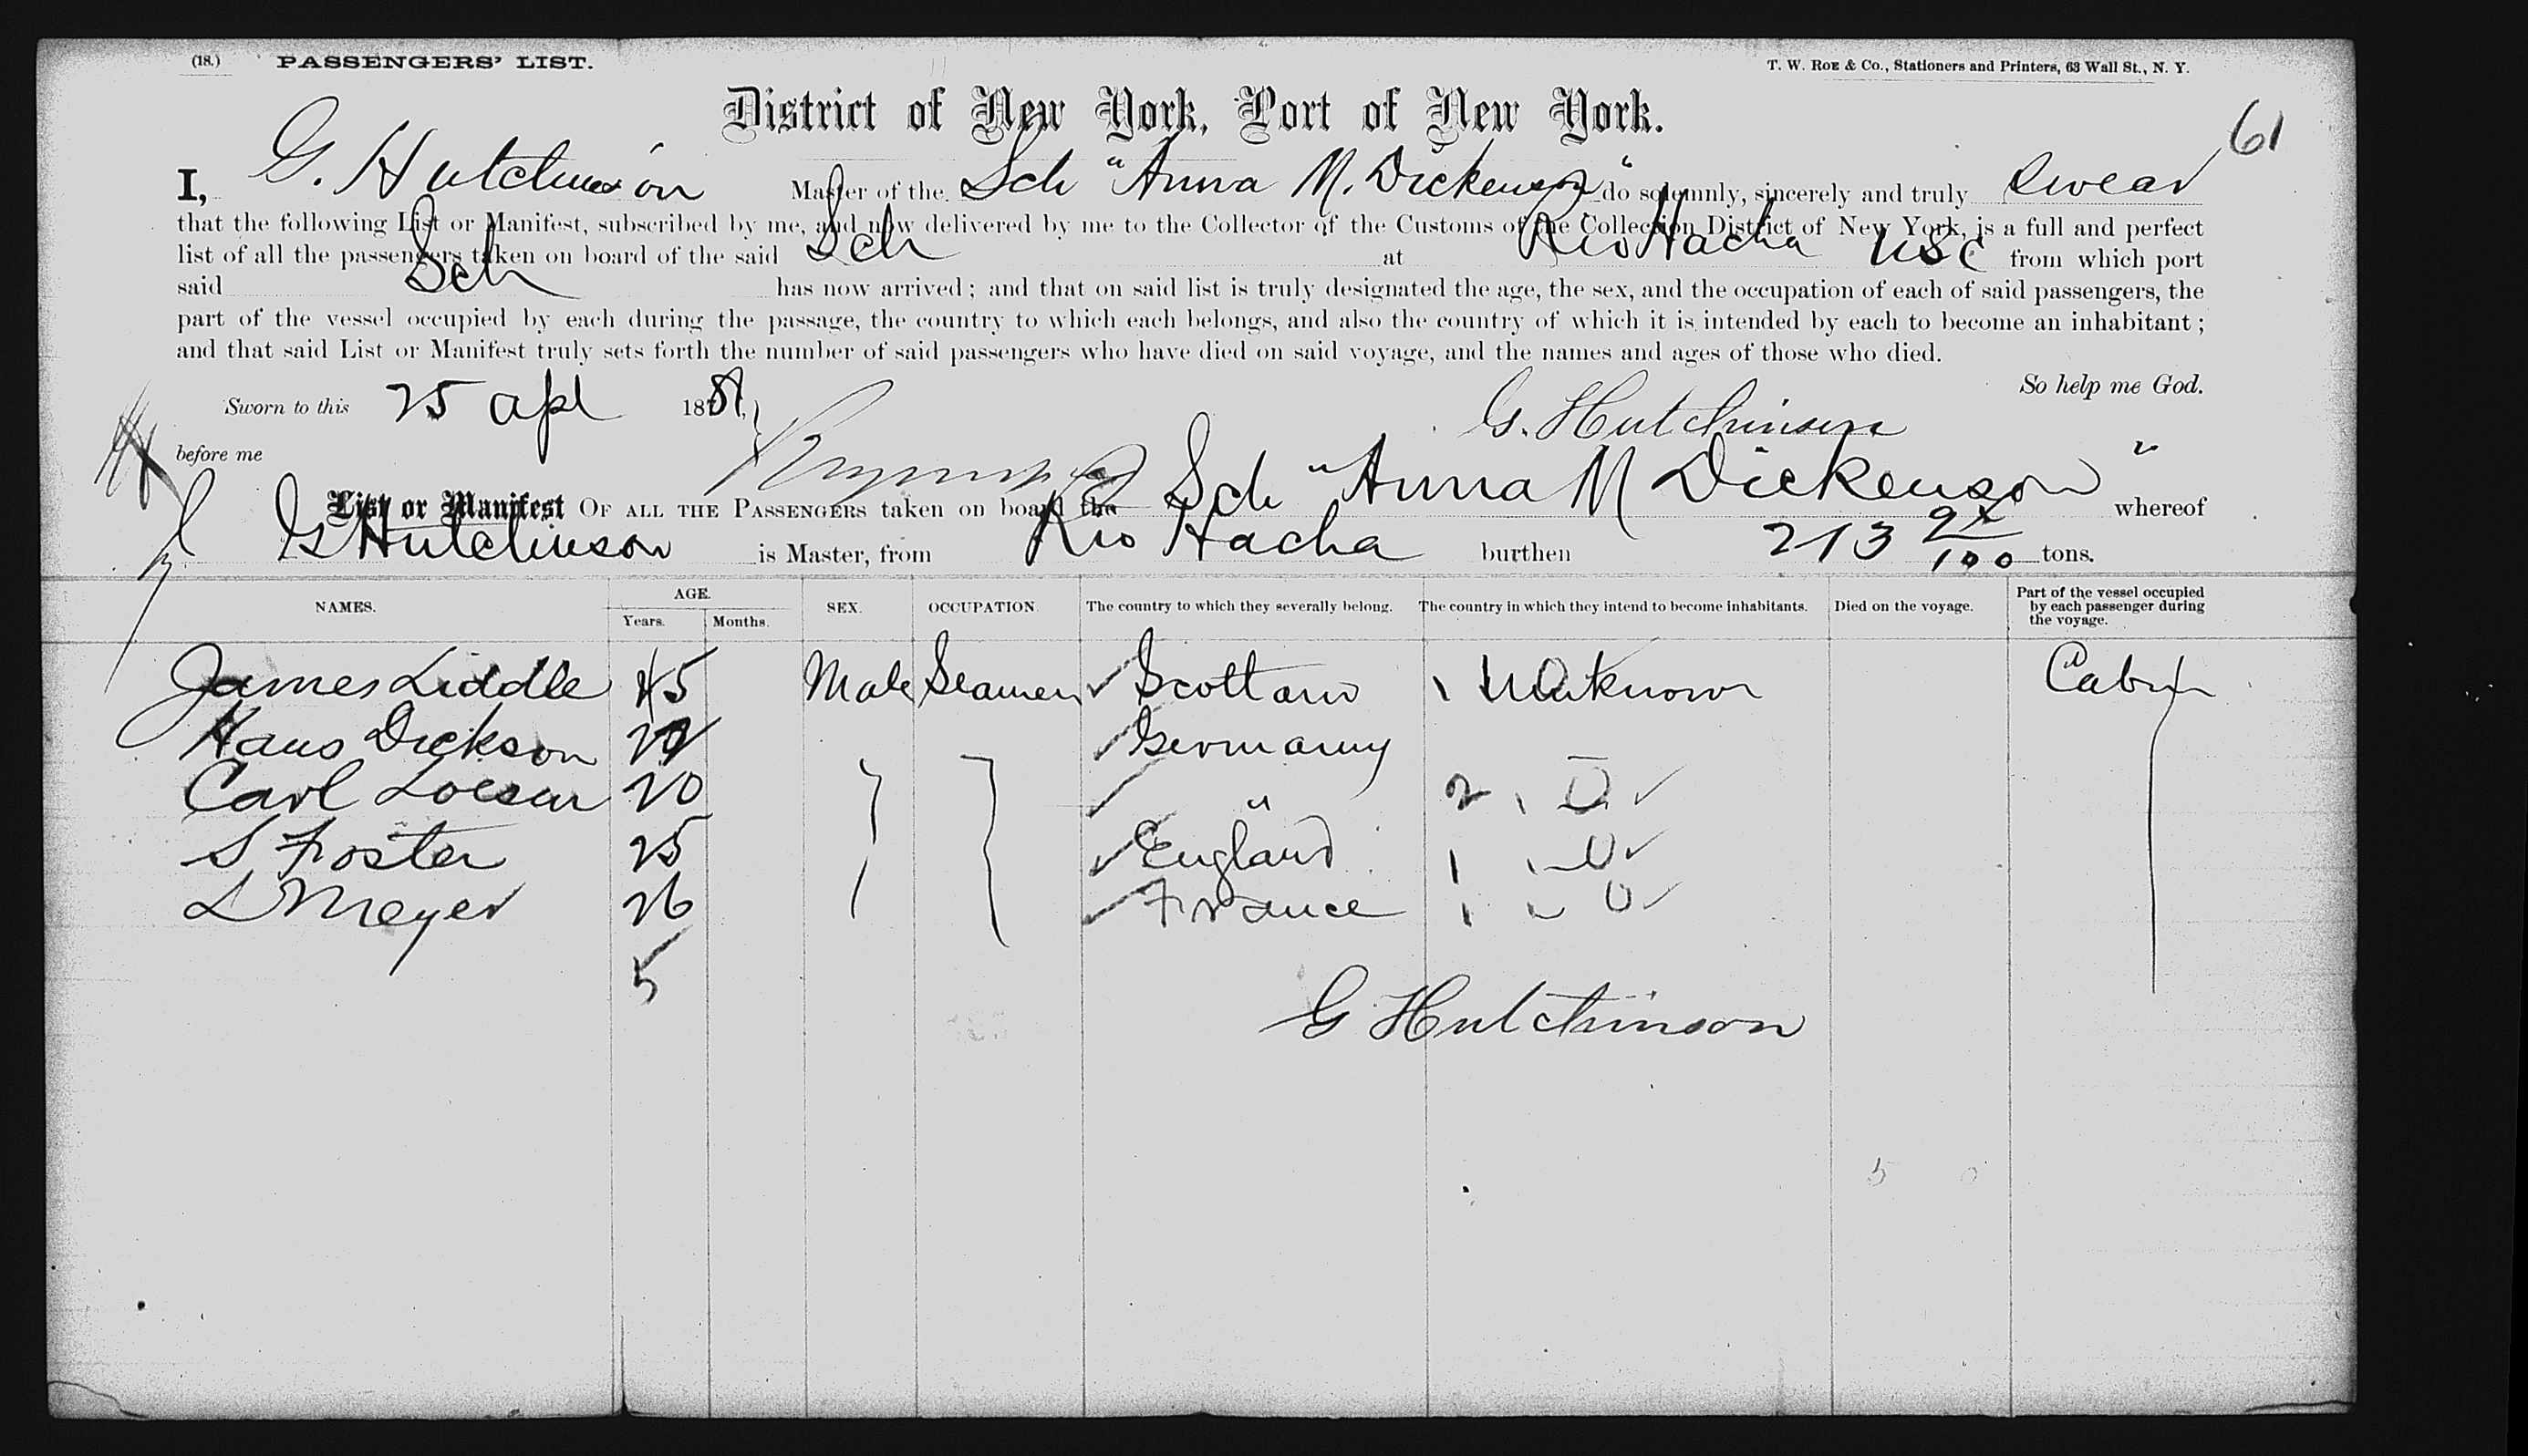 (18.) PASSENGERS' LIST.
T. W. ROE & Co., Stationers and Printers, 63 Wall St., N. Y.
District of New York, Port of New York.
61
I, G. Hutchinson Master of the Sch "Anna M. Dickenson" do solemnly, sincerely and truly swear
that the following List or Manifest, subscribed by me, and now delivered by me to the Collector of the Customs of the Collection District of New York, is a full and perfect
list of all the passengers taken on board of the said Sch at Rio Hacha USC from which port
said Sch has now arrived; and that on said list is truly designated the age, the sex, and the occupation of each of said passengers, the
part of the vessel occupied by each during the passage, the country to which each belongs, and also the country of which it is intended by each to become an inhabitant;
and that said List or Manifest truly sets forth the number of said passengers who have died on said voyage, and the names and ages of those who died.
So help me God.
Sworn to this 25 apl 1881,
G. Hutchinson
before me
List or Manifest OF ALL THE PASSENGERS taken on board the Sch "Anna M Dickenson" whereof
G Hutchinson is Master, from Rio Hacha burthen 213 /100 tons.
NAMES. AGE. Years. Months. SEX. OCCUPATION. The country to which they severally belong. The country in which they intend to become inhabitants. Died on the voyage. Part of the vessel occupied by each passenger during the voyage.
James Liddle 45 Male Seamen Scotland 1 Unknown Cabin
Hans Dickson Germany
Carl 20 " 2 U
S Foster 25 England 1 U
L Meyer 26 France 1 U
5
G Hutchinson
5 0